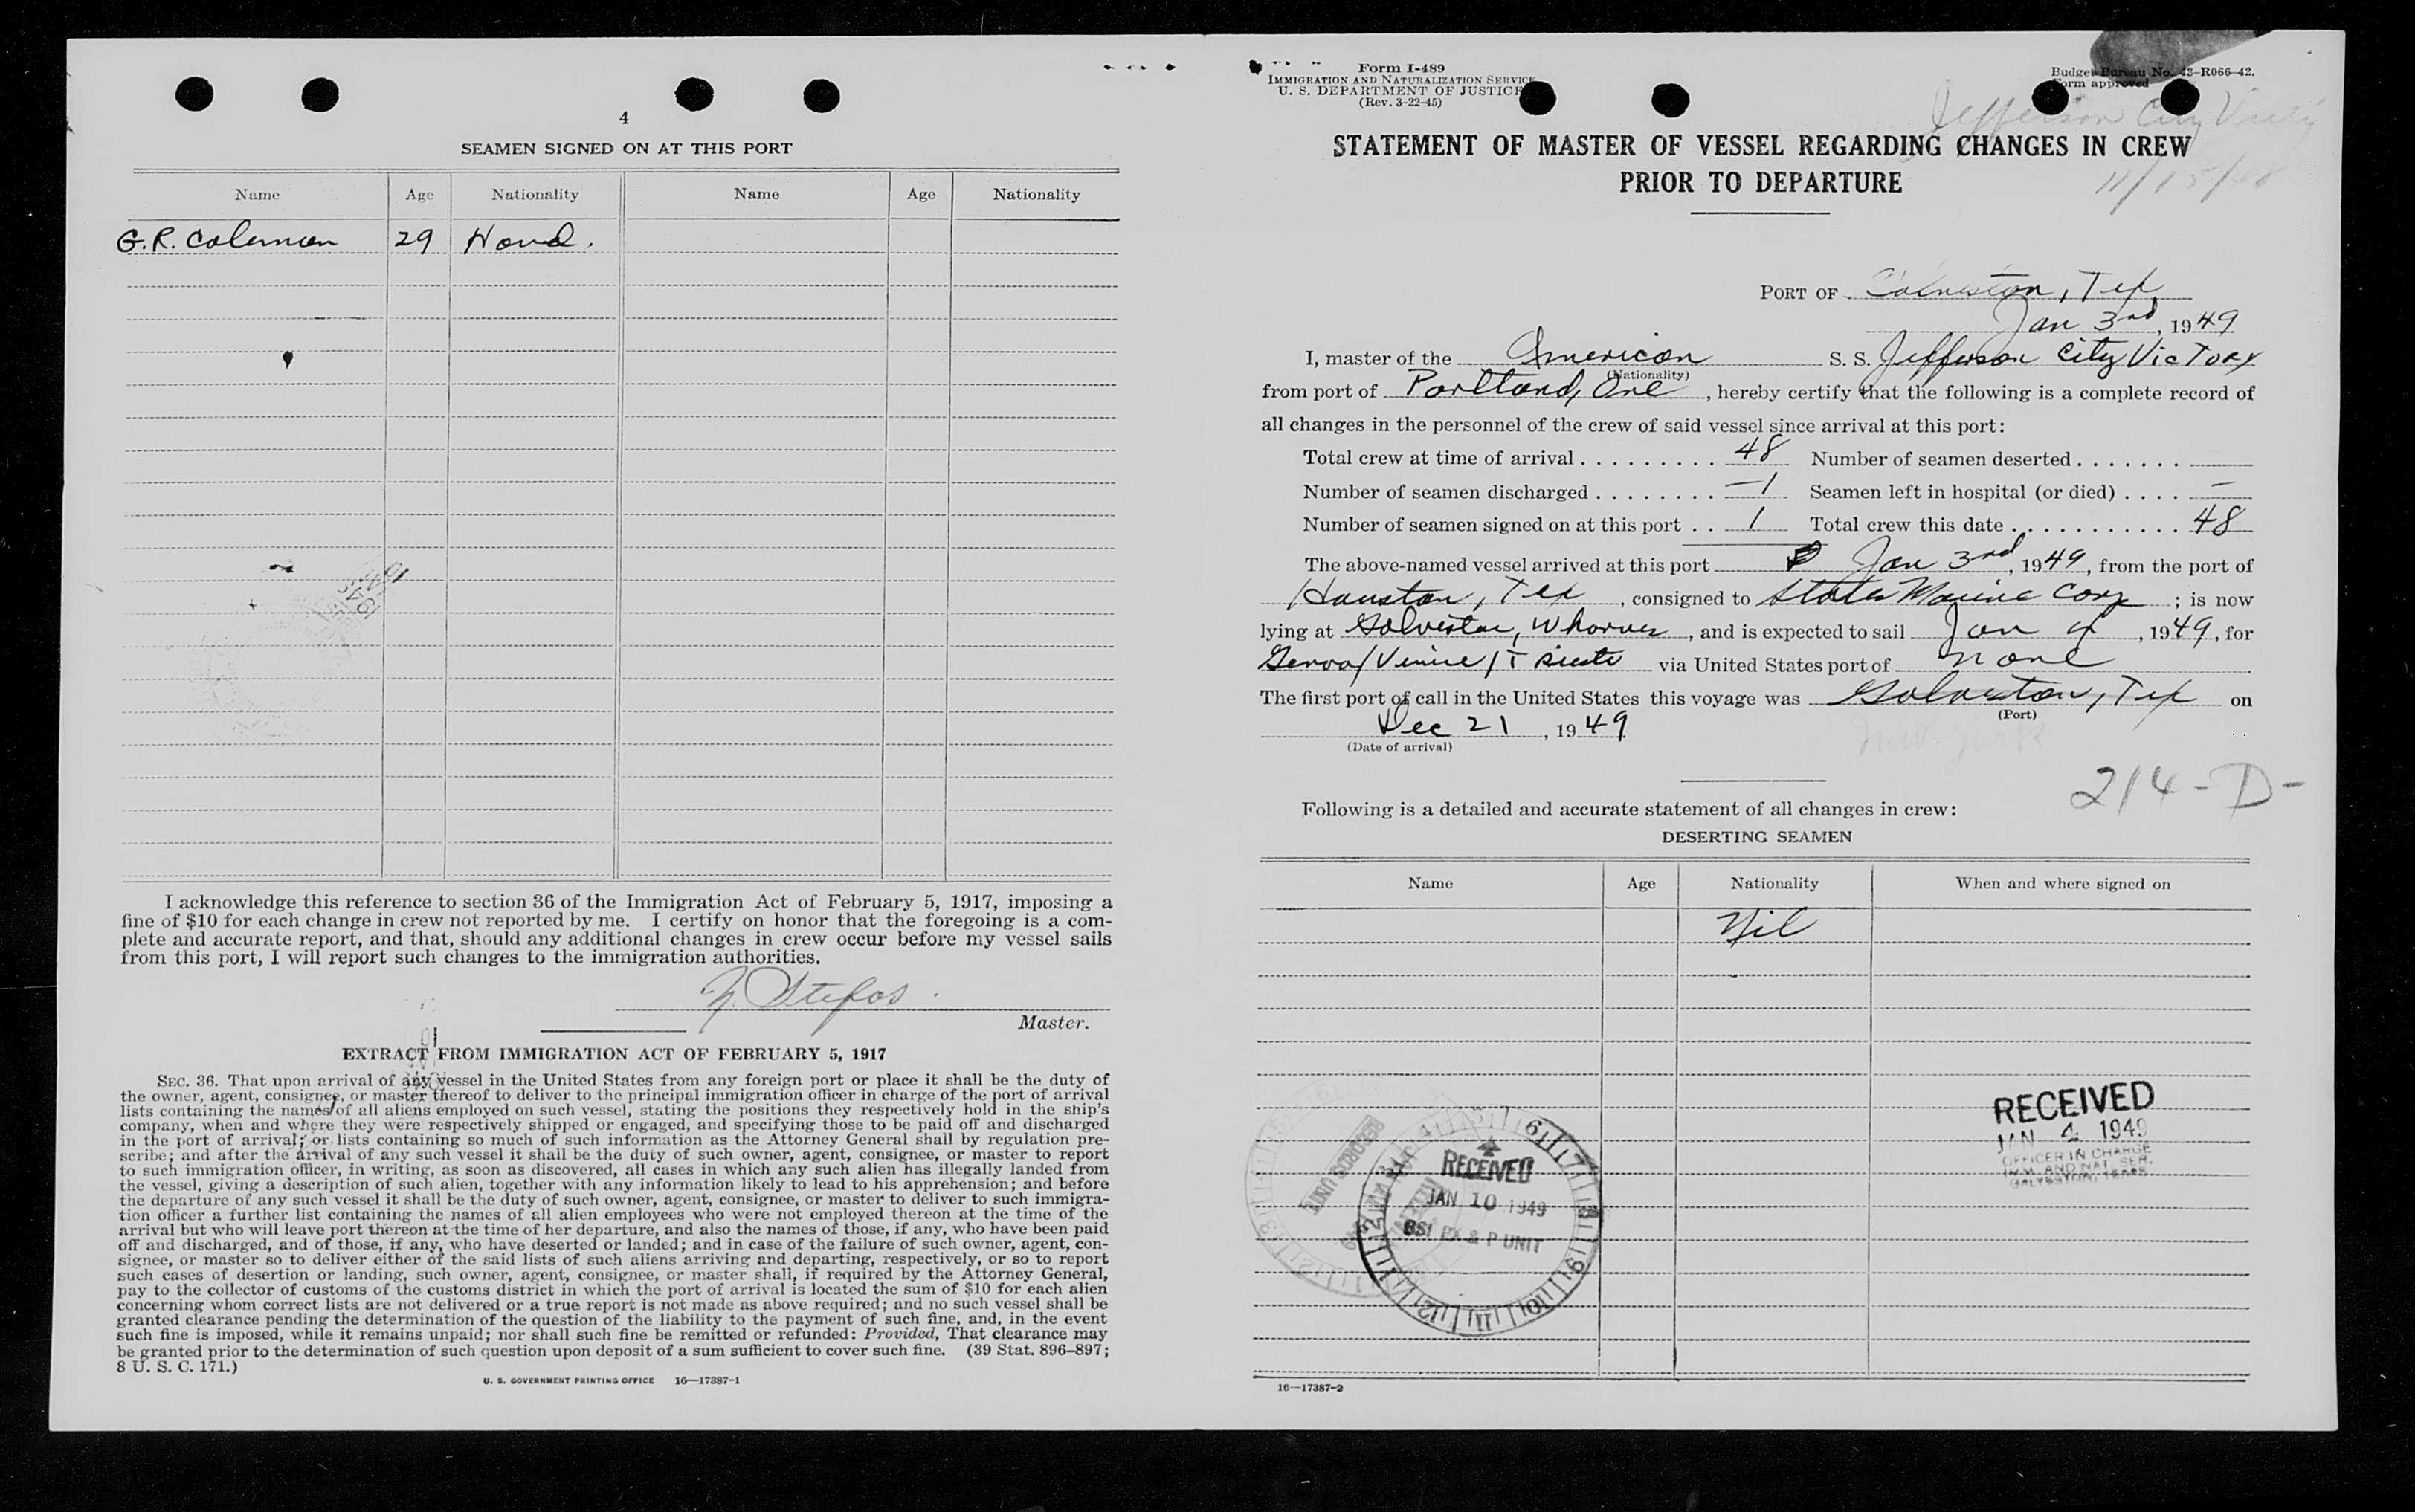 4
SEAMEN SIGNED ON AT THIS PORT
Name Age Nationality Name Age Nationality
G.R. Coleman 29 Hond.
I acknowledge this reference to section 36 of the Immigration Act of February 5, 1917, imposing a
fine of $10 for each change in crew not reported by me. I certify on honor that the foregoing is a com-
plete and accurate report, and that, should any additional changes in crew occur before my vessel sails
from this port, I will report such changes to the immigration authorities.
Stefos
Master.
EXTRACT FROM IMMIGRATION ACT OF FEBRUARY 5, 1917
SEC. 36. That upon arrival of any vessel in the United States from any foreign port or place it shall be the duty of
the owner, agent, consignee, or master thereof to deliver to the principal immigration officer in charge of the port of arrival
lists containing the names of all aliens employed on such vessel, stating the positions they respectively hold in the ship's
company, when and where they were respectively shipped or engaged, and specifying those to be paid off and discharged
in the port of arrival; or lists containing so much of such information as the Attorney General shall by regulation pre-
scribe; and after the arrival of any such vessel it shall be the duty of such owner, agent, consignee, or master to report
to such immigration officer, in writing, as soon as discovered, all cases in which any such alien has illegally landed from
the vessel, giving a description of such alien, together with any information likely to lead to his apprehension; and before
the departure of any such vessel it shall be the duty of such owner, agent, consignee, or master to deliver to such immigra-
tion officer a further list containing the names of all alien employees who were not employed thereon at the time of the
arrival but who will leave port thereon at the time of her departure, and also the names of those, if any, who have been paid
off and discharged, and of those, if any, who have deserted or landed; and in case of the failure of such owner, agent, con-
signee, or master so to deliver either of the said lists of such aliens arriving and departing, respectively, or so to report
such cases of desertion or landing, such owner, agent, consignee, or master shall, if required by the Attorney General,
pay to the collector of customs of the customs district in which the port of arrival is located the sum of $10 for each alien
concerning whom correct lists are not delivered or a true report is not made as above required; and no such vessel shall be
granted clearance pending the determination of the question of the liability to the payment of such fine, and, in the event
such fine is imposed, while it remains unpaid; nor shall such fine be remitted or refunded: Provided, That clearance may
be granted prior to the determination of such question upon deposit of a sum sufficient to cover such fine. (39 Stat. 896–897;
8 U. S. C. 171.)
U. S. GOVERNMENT PRINTING OFFICE 16—17387-1
Form I-489
IMMIGRATION AND NATURALIZATION SERVICE
U. S. DEPARTMENT OF JUSTICE
(Rev. 3-22-45)
Budget Bureau No. 43-R066-42.
Form approved
Jefferson City Victy
11/15/48
STATEMENT OF MASTER OF VESSEL REGARDING CHANGES IN CREW
PRIOR TO DEPARTURE
PORT OF Galveston, Tex
Jan 3rd, 1949
I, master of the American S. S. Jefferson City Victory
(Nationality)
from port of Portland, Ore, hereby certify that the following is a complete record of
all changes in the personnel of the crew of said vessel since arrival at this port:
Total crew at time of arrival 48 Number of seamen deserted —
Number of seamen discharged —1 Seamen left in hospital (or died) —
Number of seamen signed on at this port 1 Total crew this date 48
The above-named vessel arrived at this port Jan 3rd, 1949, from the port of
Houston, Tex, consigned to States Marine Corp; is now
lying at Galveston, Wharves, and is expected to sail Jan 4, 1949, for
Genoa/Venice/Trieste via United States port of none
The first port of call in the United States this voyage was Galveston, Tex on
(Port)
Dec 21, 1949
(Date of arrival)
New York
214-D-
Following is a detailed and accurate statement of all changes in crew:
DESERTING SEAMEN
Name Age Nationality When and where signed on
Nil
RECEIVED
JAN 4 1949
OFFICER IN CHARGE
IMM. AND NAT. SER.
GALVESTON, TEXAS
RECORDS UNIT
RECEIVED
JAN 10 1949
BSI PX & P UNIT
16—17387-2